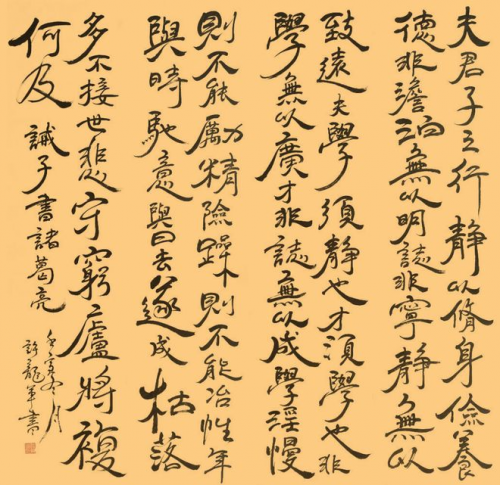 夫君子之行靜以脩身儉養
德非澹泊無以明誌非寧靜無以
致遠夫學須靜也才須學也非
學無以廣才非誌無以成學淫慢
則不能勵精險躁則不能冶性年
與時馳意與日去遂成枯落
多不接世悲守窮廬將複
何及 誡子書諸葛亮
壬寅冬月
許龍軍書